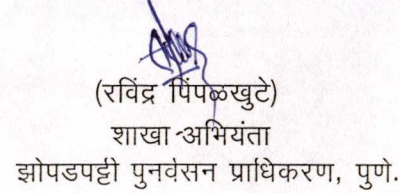 (रविंद्र पिंपळखुटे)
शाखा अभियंता
झोपडपट्टी पुनर्वसन प्राधिकरण, पुणे.